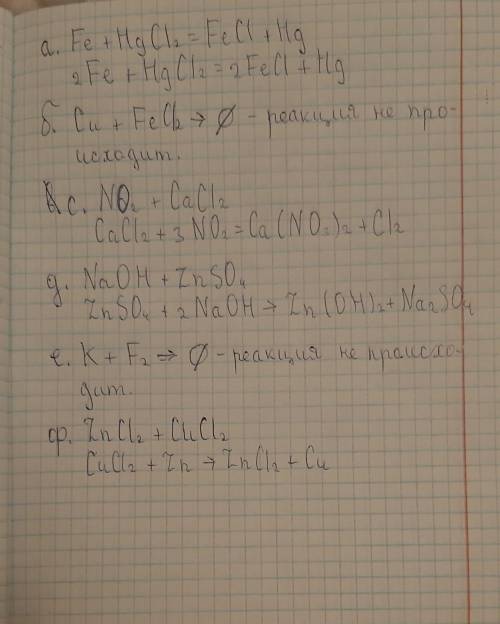 а. Fe + HgCl₂ = FeCl + Hg
2Fe + HgCl₂ = 2FeCl + Hg
б. Cu + FeCl₂ → ∅ - реакция не про-
исходит.
с. NO₂ + CaCl₂
CaCl₂ + 3NO₂ = Ca(NO₃)₂ + Cl₂
д. NaOH + ZnSO₄
ZnSO₄ + 2NaOH → Zn(OH)₂ + Na₂SO₄
е. K + F₂ → ∅ - реакция не происхо-
дит.
ф. ZnCl₂ + CuCl₂
CuCl₂ + Zn → ZnCl₂ + Cu